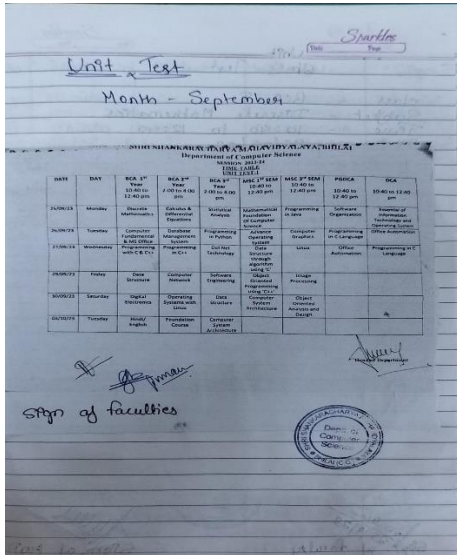 Sparkles
Date Page
Unit Test
Month - September
SHRI SHANKARACHARYA MAHAVIDYALAYA, BHILAI
Department of Computer Science
SESSION 2023-24
TIME TABLE
UNIT TEST-I
DATE DAY BCA 1st Year 10:40 to 12:40 pm BCA 2nd Year 2:00 to 4:00 pm BCA 3rd Year 2:00 to 4:00 pm MSC 1st SEM 10:40 to 12:40 pm MSC 3rd SEM 10:40 to 12:40 pm PGDCA 10:40 to 12:40 pm DCA 10:40 to 12:40 pm
25/09/23 Monday Discrete Mathematics Calculus & Differential Equations Statistical Analysis Mathematical Foundation Of Computer Science Programming in Java Software Organization Essential of Information Technology and Operating System
26/09/23 Tuesday Computer Fundamental & MS Office Database Management System Programming in Python Advance Operating System Computer Graphics Programming in C Language Office Automation
27/09/23 Wednesday Programming with C & C++ Programming in C++ Dot Net Technology Data Structure through Algorithm using 'C' Linux Office Automation Programming in C Language
29/09/23 Friday Data Structure Computer Network Software Engineering Object Oriented Programming using 'C++' Image Processing
30/09/23 Saturday Digital Electronics Operating Systems with Linux Data Structure Computer System Architecture Object Oriented Analysis and Design
03/10/23 Tuesday Hindi/ English Foundation Course Computer System Architecture
Department
sign of faculties
SHRI SHANKARACHARYA
BHILAI (C.G.)
Dept. of
Computer
Science